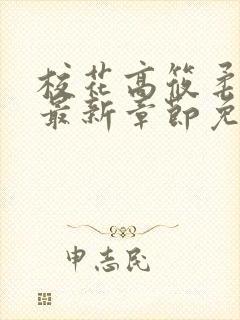 校花高筱柔
最新章節免
申志民